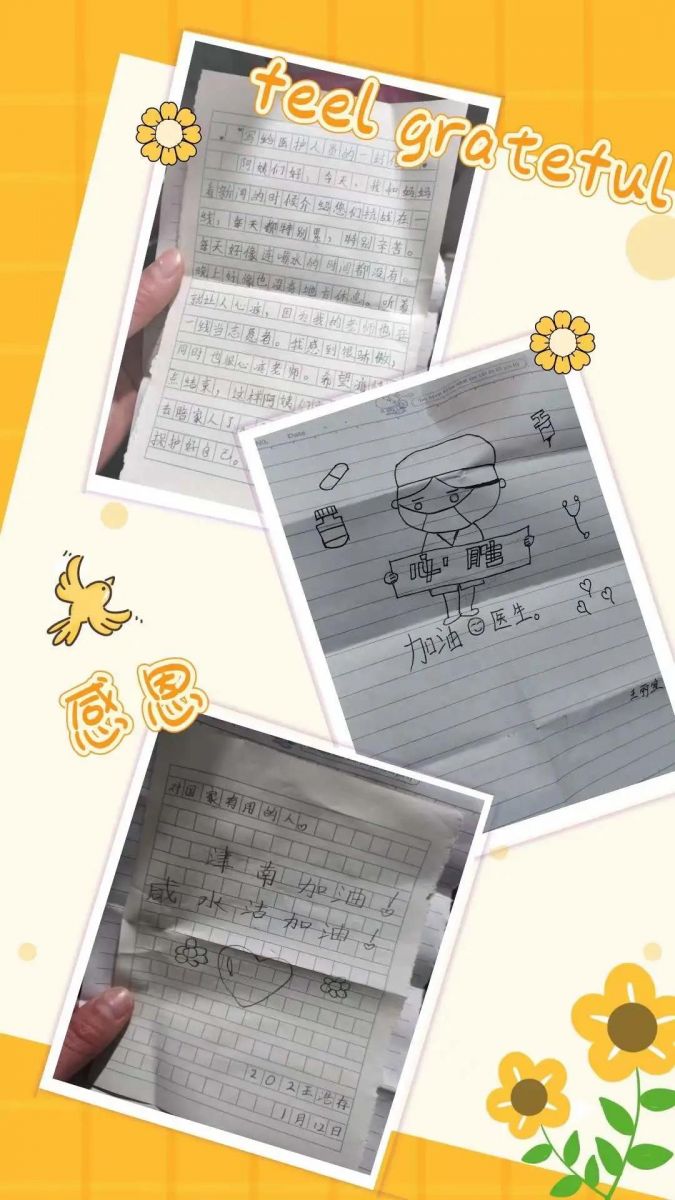 feel grateful
"写给医护人员的一封信"
阿姨们好，今天，我和妈妈
看新闻的时候介绍您们抗战在一
线，每天都特别累，特别辛苦。
每天好像连喝水的时间都没有。
晚上好像也没有地方休息。听着
就让人心疼，因为我的老师也在
一线当志愿者。我感到很骄傲，
同时也很心疼老师。希望
点结束，这样阿姨们
去陪家人了
保护好自己。
Date
必胜
加油医生。
感恩
对国家有用的人。
津南加油！
咸水沽加油！
202王浩存
1月12日